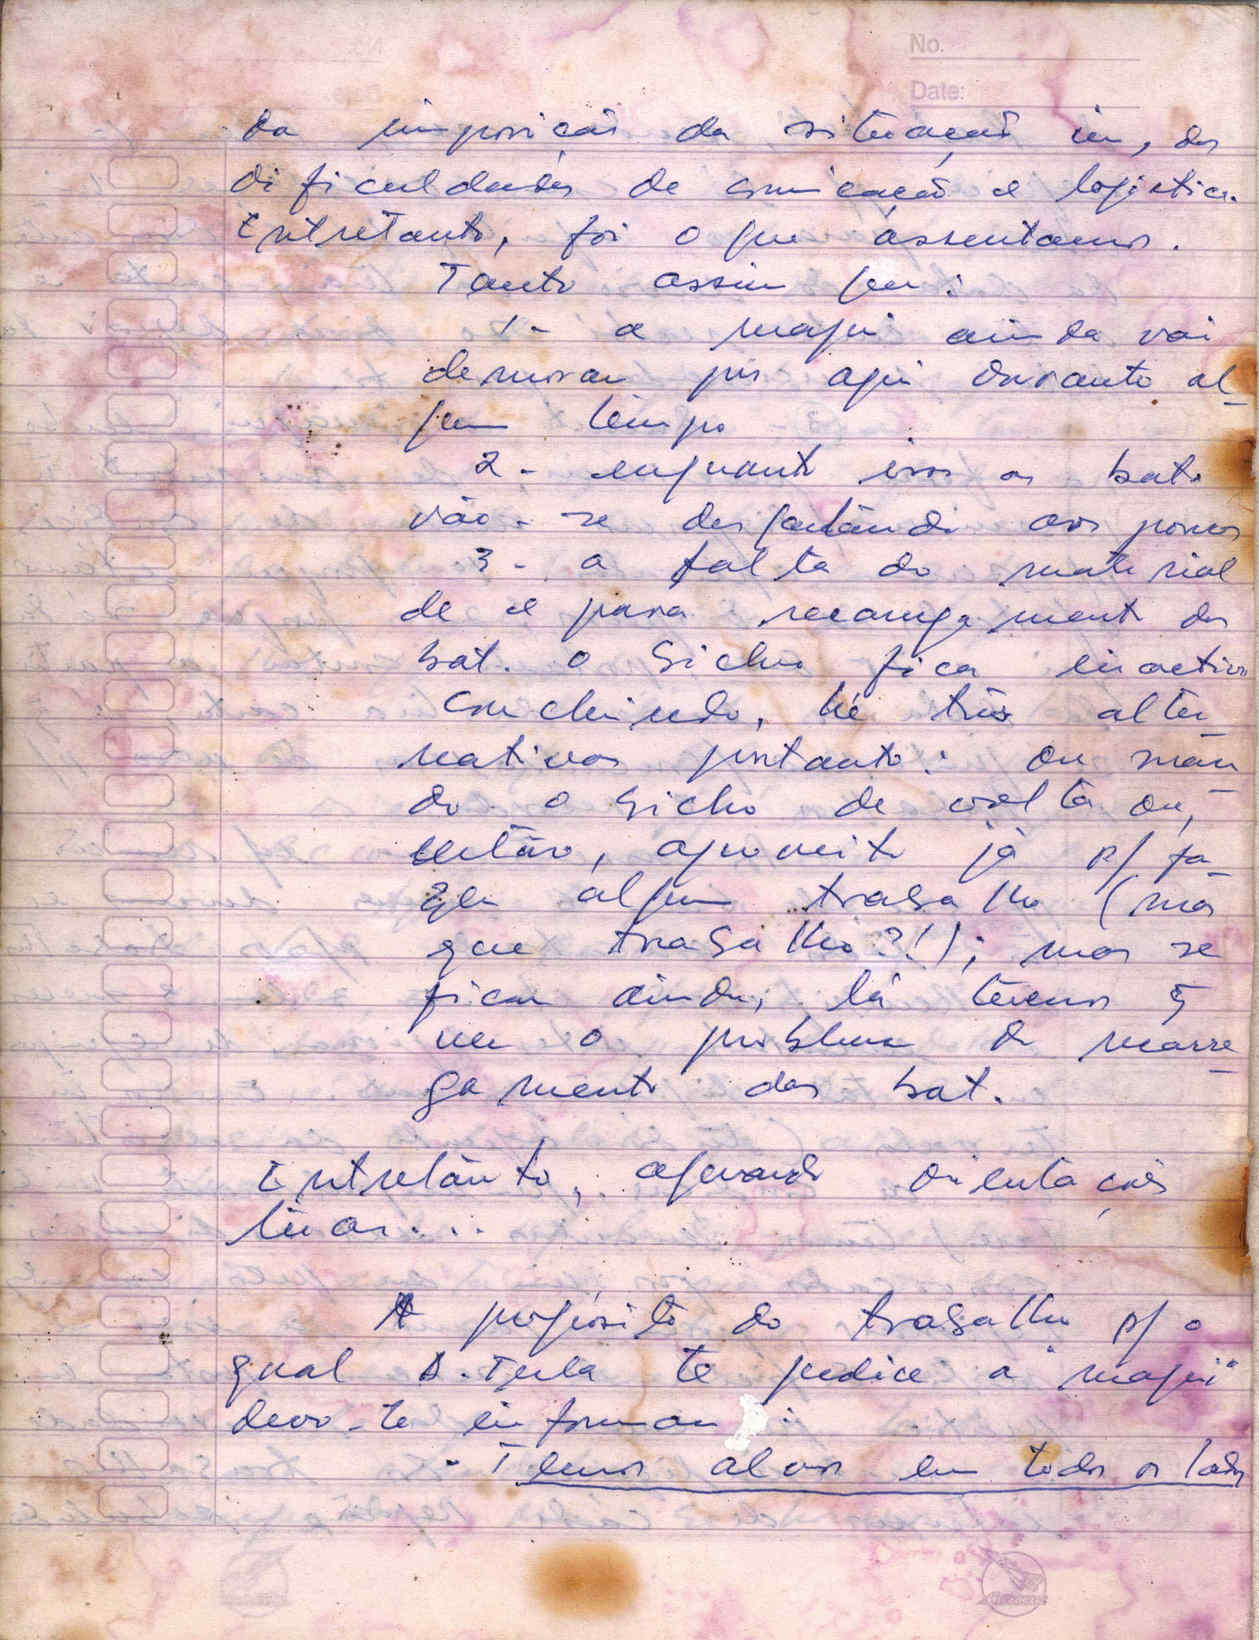 No.
Date:
da imposição da situação in, das
dificuldades de comicação e logistica.
Entretanto, foi o que assentamos.
Tanto assim que:
1- a maqui ainda vai
demorar por aqui durante al-
gum tempo
2- enquanto isso as bat.
vão-se desgastando aos poucos
3- a falta do material
de e para recarregamento das
bat. o bicho fica inactivo
Concluindo, há três alter-
nativas portanto: ou man-
do o bicho de volta ou,
então, aproveito já p/ fa-
zer algum trabalho (mas
que trabalho?!); mas se
ficar ainda, lá teremos q
ver o problema do recarre-
gamento das bat.
Entretanto, aguardo orientações
tuas....
A propósito do trabalho p/ o
qual A. Tula te pedira a "maqui"
devo-te informar:
- Temos alvos em todos os lados